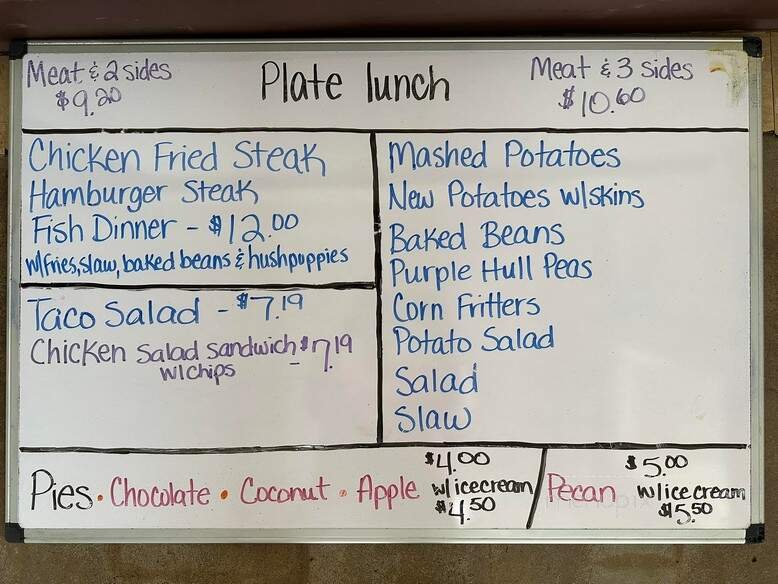 Meat & 2 sides
$9.20
Plate lunch
Meat & 3 sides
$10.60
Chicken Fried Steak
Hamburger Steak
Fish Dinner - $12.00
w/fries, slaw, baked beans & hushpuppies
Taco Salad - $7.19
Chicken Salad Sandwich $7.19
w/chips
Mashed Potatoes
New Potatoes w/skins
Baked Beans
Purple Hull Peas
Corn Fritters
Potato Salad
Salad
Slaw
Pies • Chocolate • Coconut • Apple
$4.00
w/icecream
$4.50
Pecan
$5.00
w/ice cream
$5.50